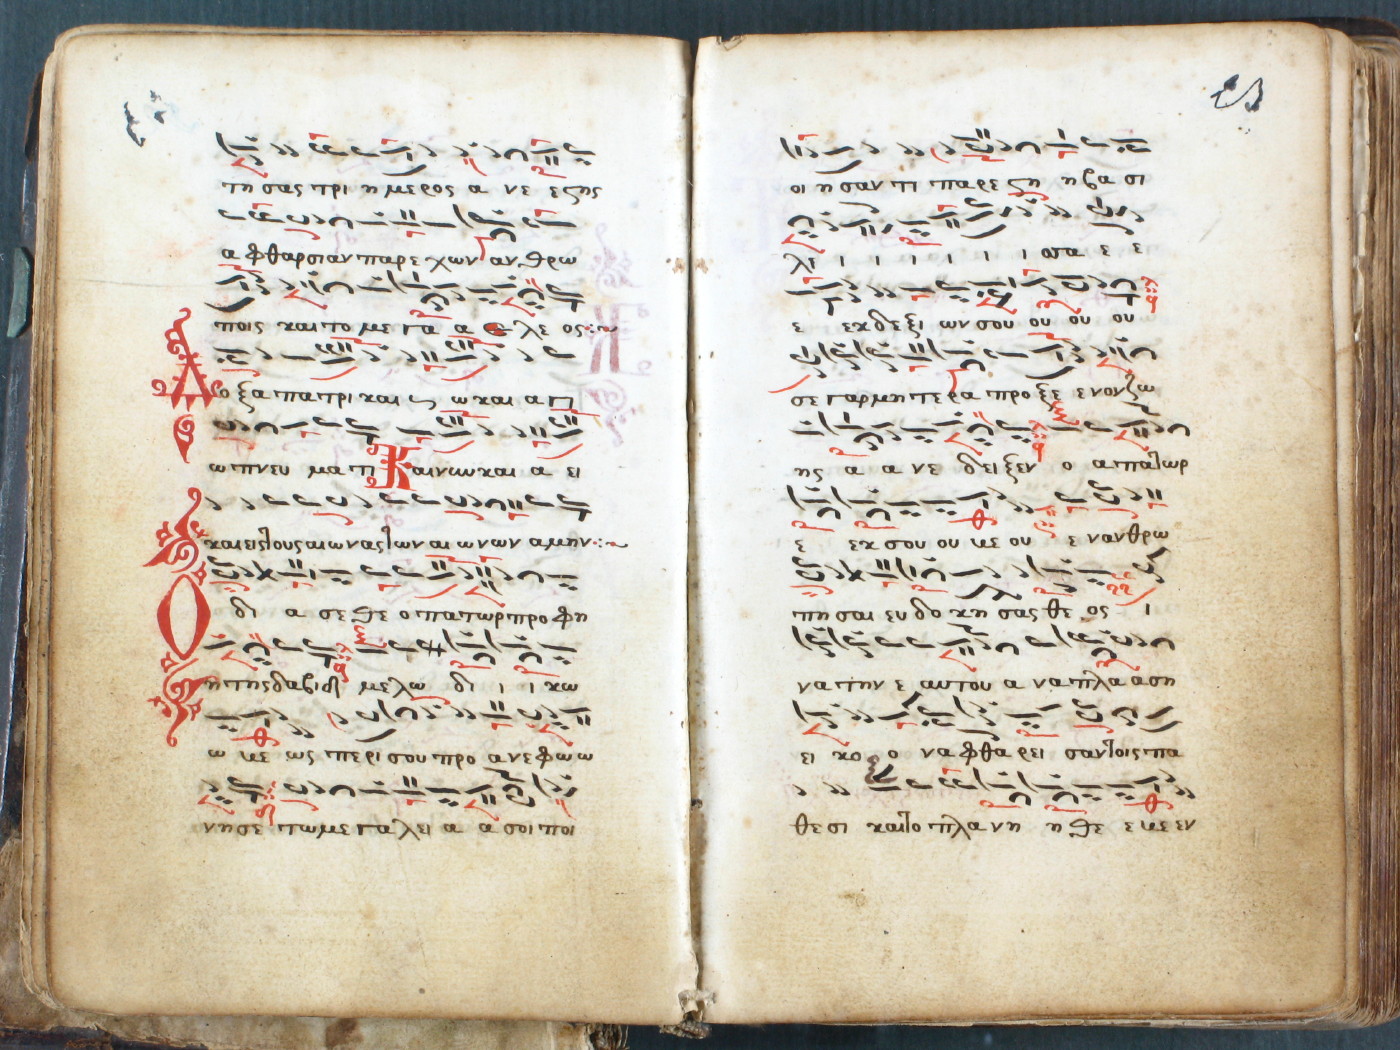 τη σας τρι η μερος α νε ε ςης
α φθαρσιαν παρε χων αν θρω
ποις και το με γα α ε λε ος
Δ ο ξα πα τρι και ω και α
ω πνευ μα τι Και νυν και α ει
και εις τους αι ω νας των αι ω νων αμην
Ο δι α σε θε ο πα τωρ προ φη
η της δαβιδ με λω δι ι ι κω
ω με ως πε ρι σου προ α νε φω ω
νη σε τω με γα λει α α σοι ποι
οι η σαν τι πα ρε ςη η βα σι
λι ι ι ι ι ι ι σσα ε ε
ε εκ δε ξι ων σου ου ου ου
σε γαρ μη τε ρα προ ξε ε νον ζω
ης α α νε δει ξεν ο α πα τωρ
ε εκ σου ου με ου ε ναν θρω
πη σαι ευ δο κη σας θε ος ι
να την ε αυτου α να πλα α ση
ει κο ο να φθα ρει σαν τοις πα
θε σι και το πλα νη η θε ε με εν